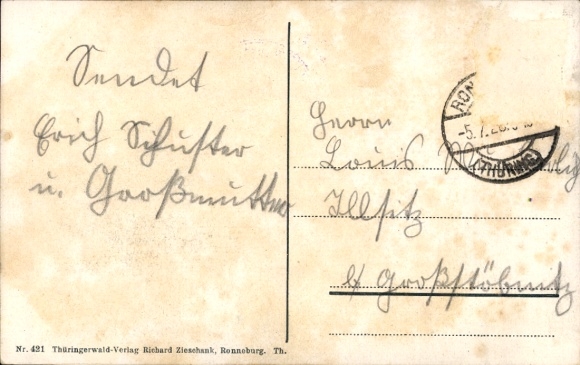 Sendet
Erich Schuster
u. Großmutter
Herrn
Louis
Illsitz
b/ Großstöbnitz
RON
-5.7.26
(THÜRING)
Nr. 421 Thüringerwald-Verlag Richard Zieschank, Ronneburg. Th.